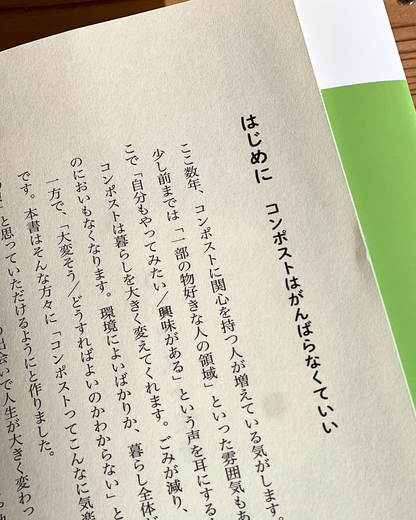 はじめに コンポストはがんばらなくていい
ここ数年、コンポストに関心を持つ人が増えている気がします。
少し前までは「一部の物好きな人の領域」といった雰囲気もあ
こで「自分もやってみたい／興味がある」という声を耳にする
コンポストは暮らしを大きく変えてくれます。ごみが減り、
のにおいもなくなります。環境によいばかりか、暮らし全体が
一方で、「大変そう／どうすればよいのかわからない」と
です。本書はそんな方々に「コンポストってこんなに気楽
と思っていただけるようにと作りました。
出会いで人生が大きく変わっ